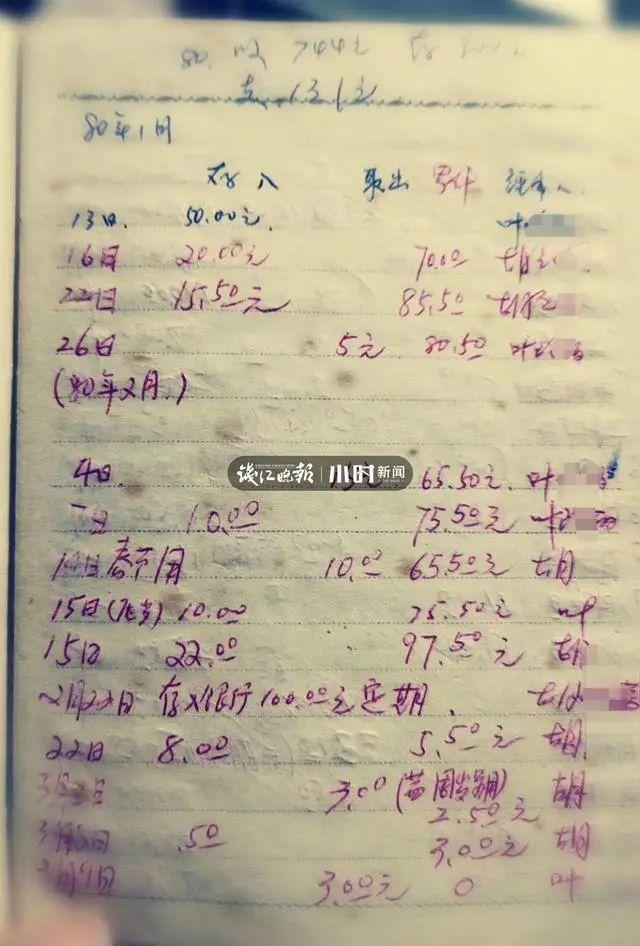 80. 收 744元 存
支 131元
80年1月
存入 取出 累计 经手人
13日. 50.00元. 叶
16日 20.00元 70.00 胡
22日 15.50元 85.50 胡
26日 5元 80.50 叶
(80年2月.)
钱江晚报 小时新闻
4日. 15元 65.50元. 叶
10.00 75.50元
14日春节用 10.00 65.50元 胡
15日 10.00 75.50元 叶
15日 22.00 97.50元 胡
2月22日 存入银行100.00元定期. 胡
22日 8.00 5.50元 胡.
3.00 胡
2.50元
.50 3.00元 胡
3.00元 0 叶